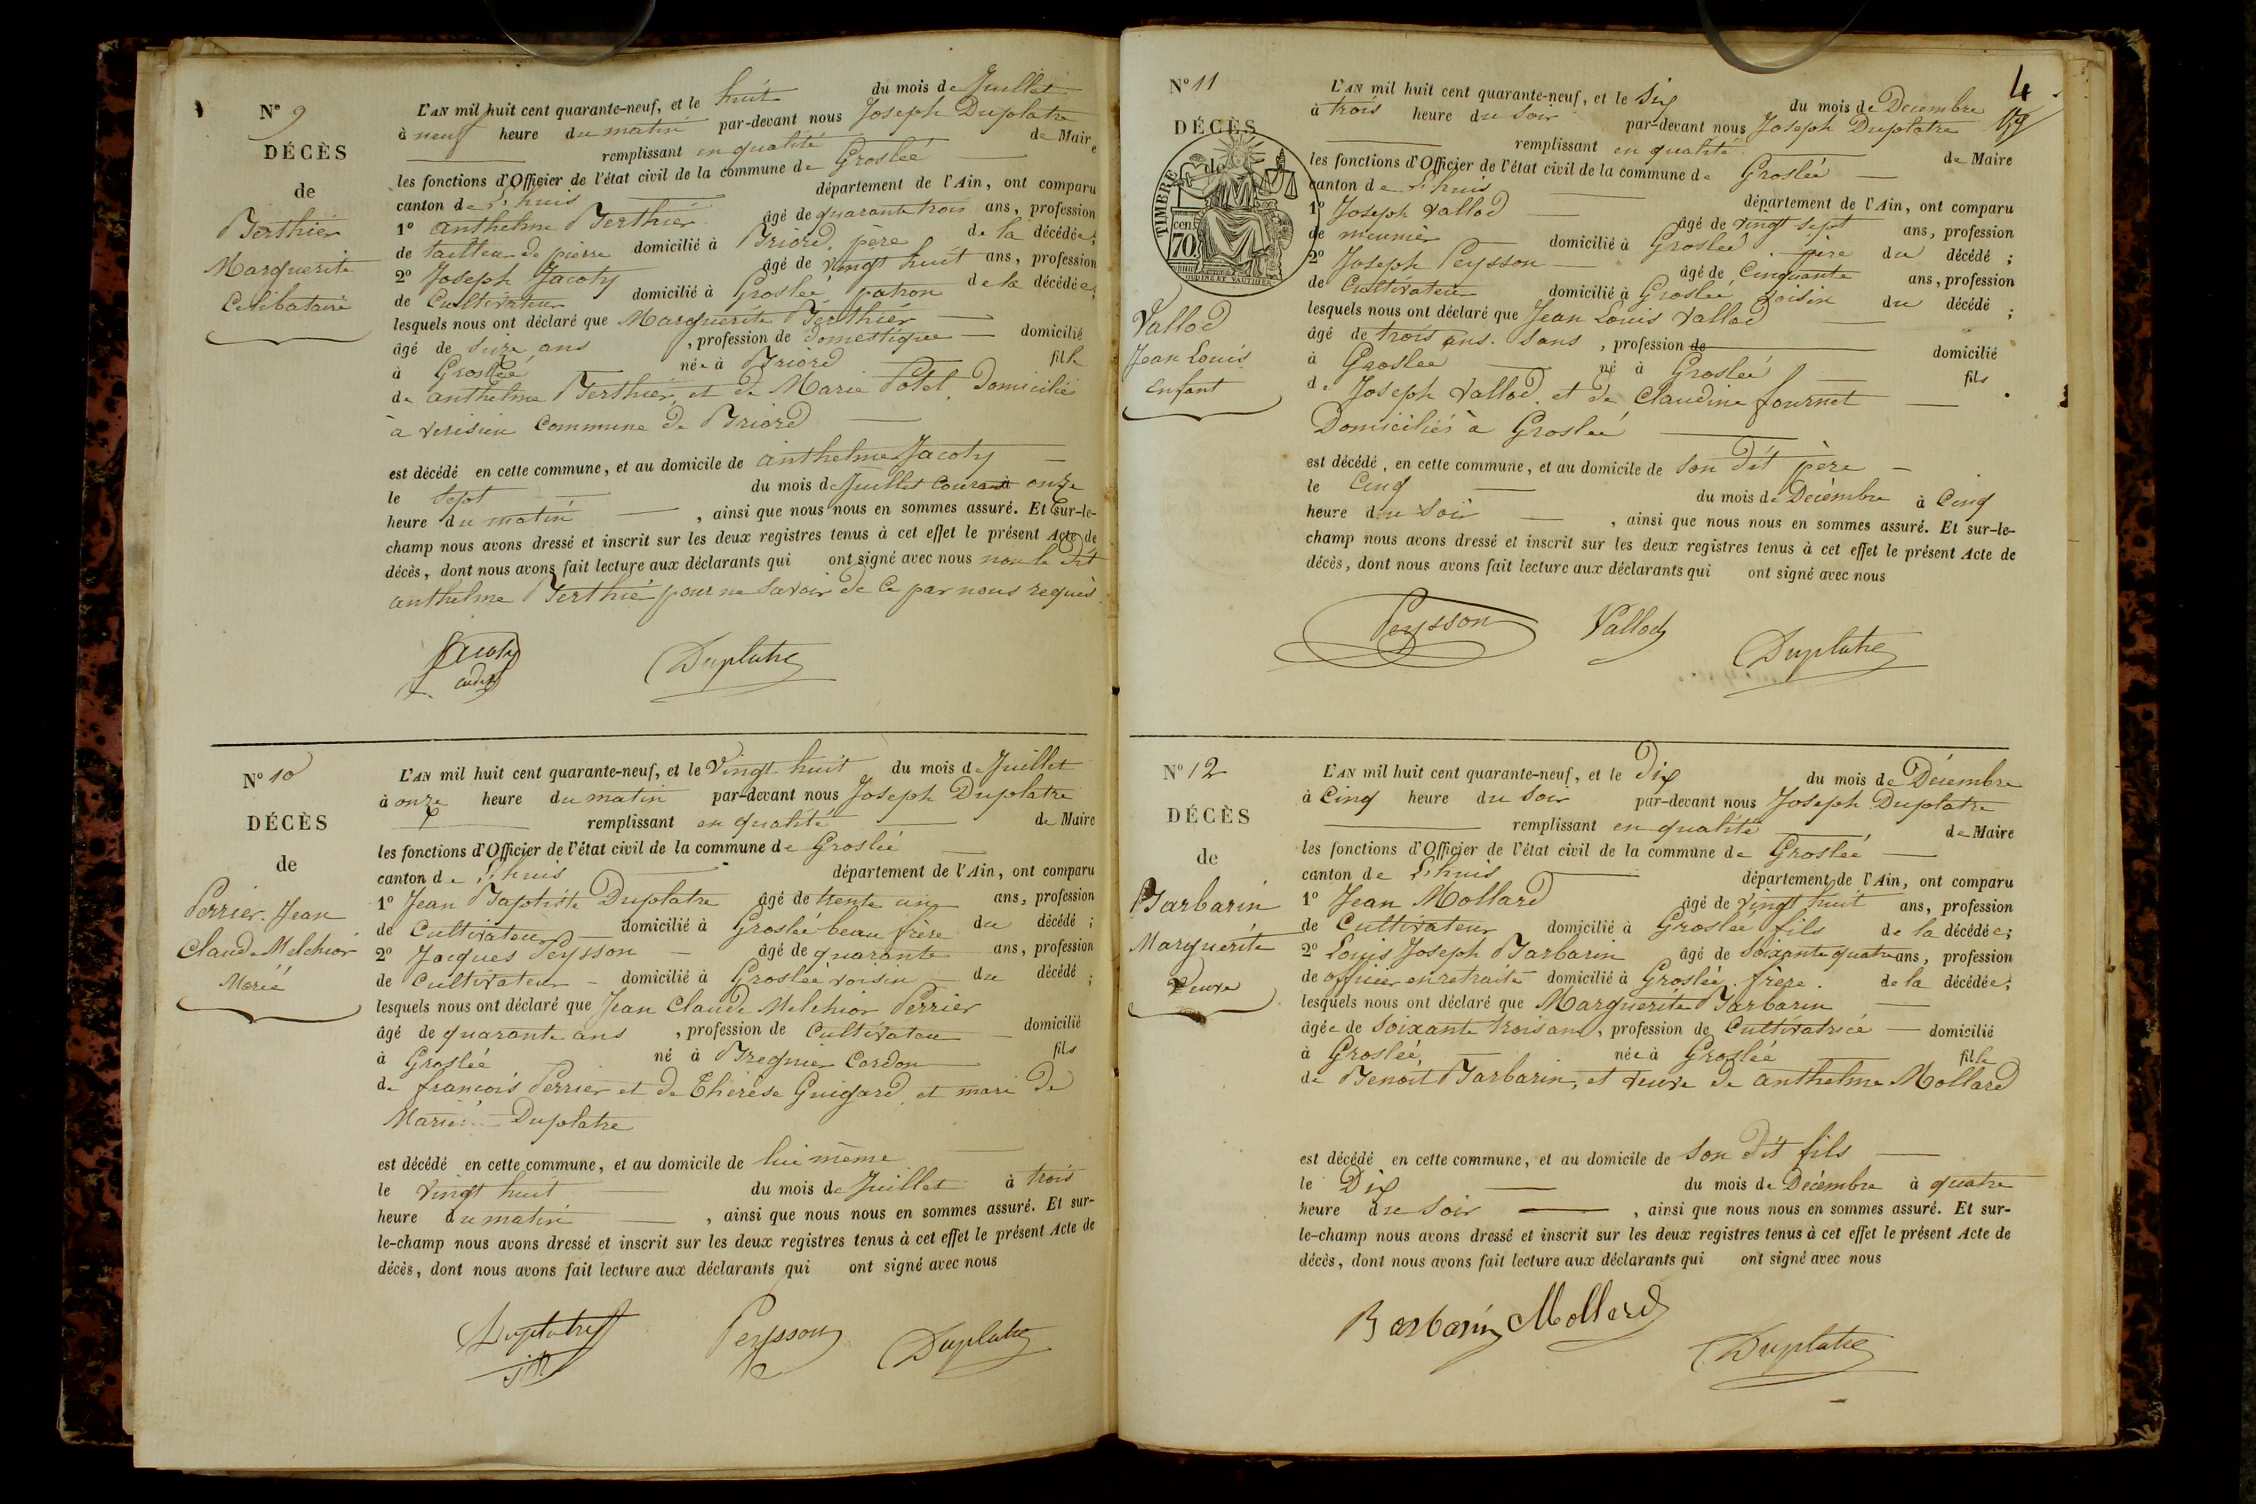 N° 9
DÉCÈS
de
Berthier
Marguerite
Celibataire
L'AN mil huit cent quarante-neuf, et le huit du mois de Juillet
à neuf heure du matin par-devant nous Joseph Duplatre
remplissant en qualité de Maire
les fonctions d'Officier de l'état civil de la commune de Groslée
canton de L'huis département de l'Ain, ont comparu
1° anthelme Berthier âgé de quarante trois ans, profession
de tailleur de pierre domicilié à Briord, père de la décédée;
2° Joseph Jacoty âgé de vingt huit ans, profession
de Cultivateur domicilié à Groslée patron de la décédée;
lesquels nous ont déclaré que Marguerite Berthier
âgé de seize ans, profession de domestique domicilié
à Groslée née à Briord fille
de anthelme Berthier et de Marie Polet, Domiciliés
à verisieu Commune de Briord
est décédé en cette commune, et au domicile de anthelme Jacoty
le Sept du mois de Juillet courant à onze
heure du matin, ainsi que nous nous en sommes assuré. Et sur-le-
champ nous avons dressé et inscrit sur les deux registres tenus à cet effet le présent Acte de
décès, dont nous avons fait lecture aux déclarants qui ont signé avec nous non le dit
anthelme Berthié pour ne savoir de ce par nous requis.
Jacoty
cadet
Duplatre
N° 10
DÉCÈS
de
Perrier Jean
Claude Melchior
Marié
L'AN mil huit cent quarante-neuf, et le Vingt huit du mois de Juillet
à onze heure du matin par-devant nous Joseph Duplatre
remplissant en qualité de Maire
les fonctions d'Officier de l'état civil de la commune de Groslée
canton de L'huis département de l'Ain, ont comparu
1° Jean Baptiste Duplatre âgé de trente un ans, profession
de Cultivateur domicilié à Groslée beau frère du décédé;
2° Jacques Peysson âgé de quarante ans, profession
de Cultivateur domicilié à Groslée voisin du décédé;
lesquels nous ont déclaré que Jean Claude Melchior Perrier
âgé de quarante ans, profession de Cultivateur domicilié
à Groslée né à Bregnier Cordon fils
de françois Perrier et de Thérèse Guigard, et mari de
Marie Duplatre
est décédé en cette commune, et au domicile de lui même
le vingt huit du mois de Juillet à trois
heure du matin, ainsi que nous nous en sommes assuré. Et sur-
le-champ nous avons dressé et inscrit sur les deux registres tenus à cet effet le présent Acte de
décès, dont nous avons fait lecture aux déclarants qui ont signé avec nous
Duplatre
Peysson
Duplatre
4
N° 11
DÉCÈS
de
TIMBRE
70
cen
Vallod
Jean Louis
Enfant
L'AN mil huit cent quarante-neuf, et le Six du mois de Decembre
à trois heure du soir par-devant nous Joseph Duplatre
remplissant en qualité de Maire
les fonctions d'Officier de l'état civil de la commune de Groslée
canton de L'huis département de l'Ain, ont comparu
1° Joseph Vallod âgé de vingt sept ans, profession
de meunier domicilié à Groslée père du décédé;
2° Joseph Peysson âgé de Cinquante ans, profession
de Cultivateur domicilié à Groslée voisin du décédé;
lesquels nous ont déclaré que Jean Louis Vallod
âgé de trois ans. Sans, profession de domicilié
à Groslee né à Groslée fils
de Joseph Vallod. et de Claudine fournet
Domiciliés à Groslée
est décédé, en cette commune, et au domicile de son dit père
le Cinq du mois de Decembre à Cinq
heure du soir, ainsi que nous nous en sommes assuré. Et sur-le-
champ nous avons dressé et inscrit sur les deux registres tenus à cet effet le présent Acte de
décès, dont nous avons fait lecture aux déclarants qui ont signé avec nous
Peysson
Vallod
Duplatre
N° 12
DÉCÈS
de
Barbarin
Marguerite
Veuve
L'AN mil huit cent quarante-neuf, et le Dix du mois de Décembre
à Cinq heure du soir par-devant nous Joseph Duplatre
remplissant en qualité de Maire
les fonctions d'Officier de l'état civil de la commune de Groslée
canton de L'huis département de l'Ain, ont comparu
1° Jean Mollard âgé de vingt huit ans, profession
de Cultivateur domicilié à Groslée fils de la décédée;
2° Louis Joseph Barbarin âgé de Soixante quatre ans, profession
de officier en retraite domicilié à Groslée. frère. de la décédée;
lesquels nous ont déclaré que Marguerite Barbarin
âgée de Soixante trois ans, profession de Cultivatrice domicilié
à Groslée, née à Groslée fille
de Benoit Barbarin, et veuve de anthelme Mollard
est décédé en cette commune, et au domicile de son dit fils
le Dix du mois de Décembre à quatre
heure du soir, ainsi que nous nous en sommes assuré. Et sur-
le-champ nous avons dressé et inscrit sur les deux registres tenus à cet effet le présent Acte de
décès, dont nous avons fait lecture aux déclarants qui ont signé avec nous
Barbarin Mollard
Duplatre